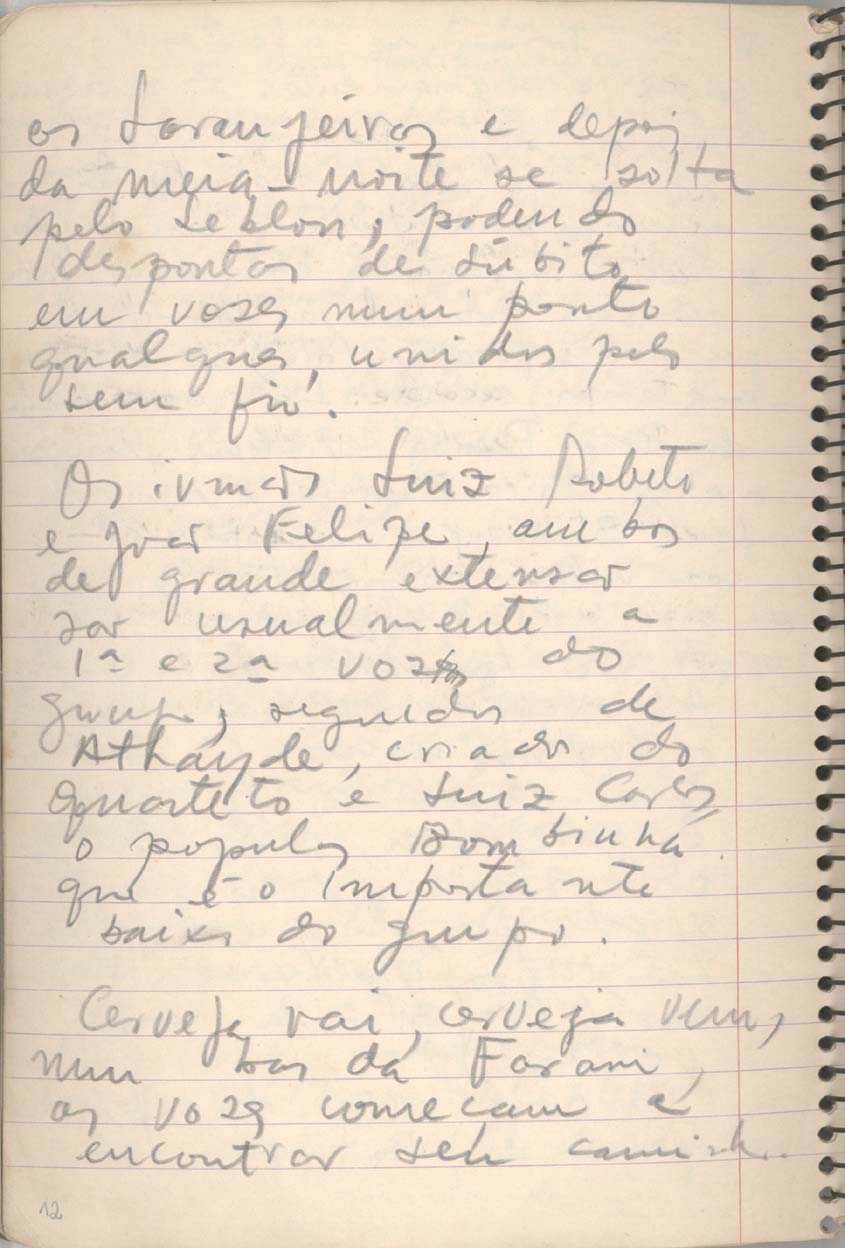 as Laranjeiras e depois
da meia-noite se solta
pelo Leblon, podendo
despontar de súbito
em vozes num ponto
qualquer, unidos pelo
sem fio.
Os irmãos Luiz Roberto
e João Felipe, ambos
de grande extensão
são usualmente a
1ª e 2ª voz do
grupo, seguidos de
Athayde, criador do
quarteto e Luiz Carlos,
o popular Bombinha
que é o importante
baixo do grupo.
Cerveja vai, cerveja vem,
num bar da Farani,
as vozes comecam a
encontrar seu caminho.
12